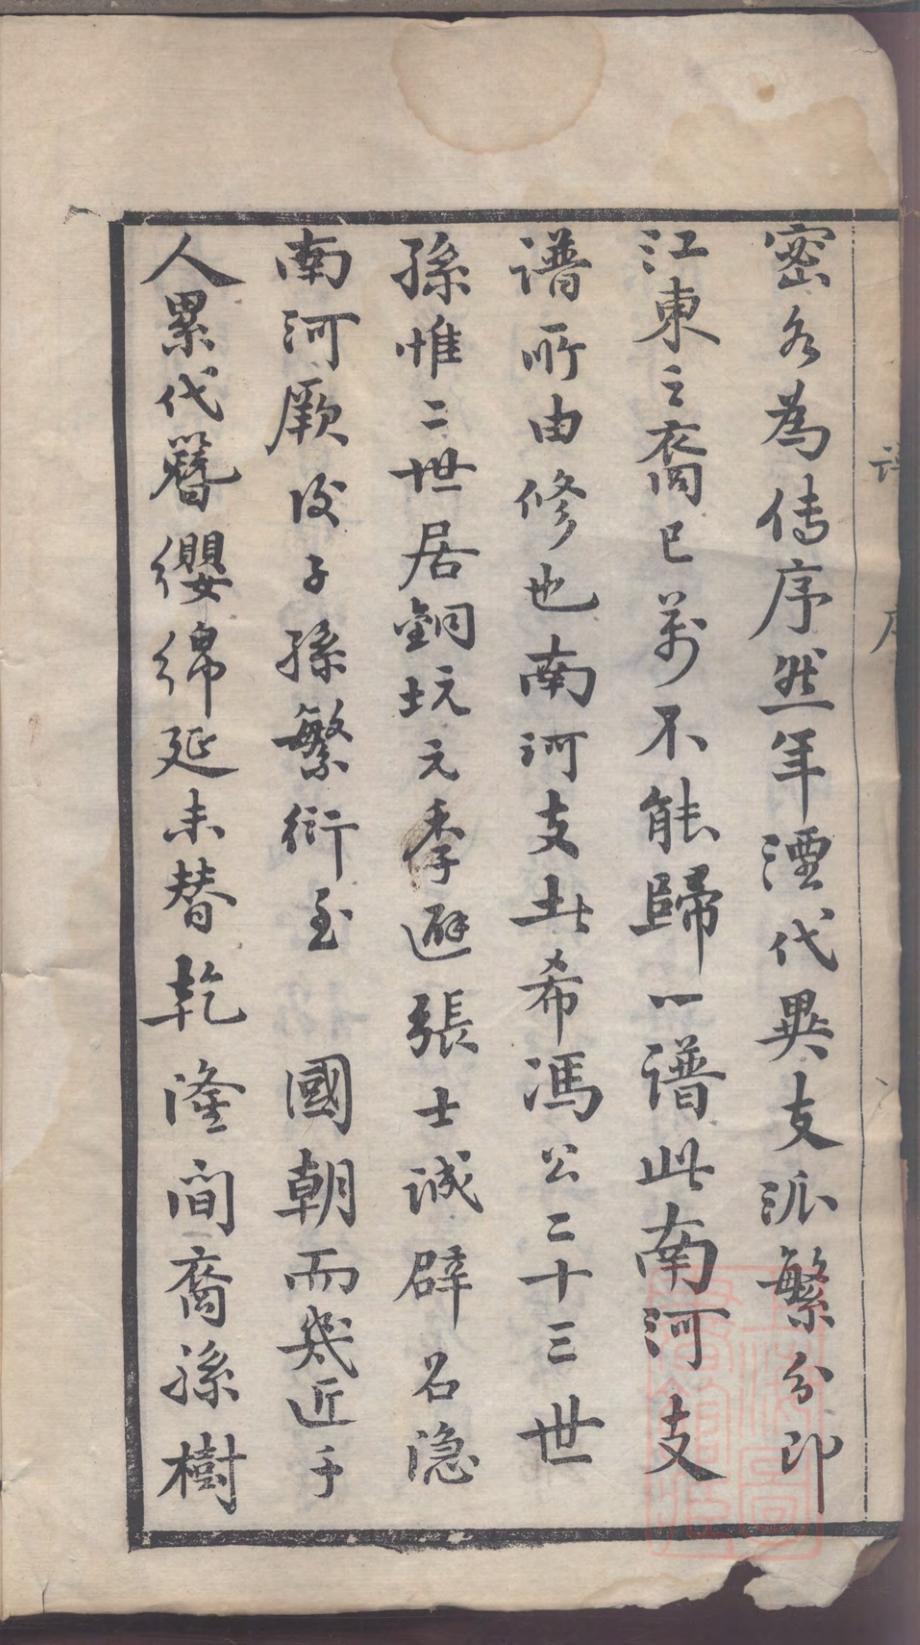 密各為傳序然年湮代異支派繁分即
江東之裔已萬不能歸一譜此南河支
譜所由修也南河支此希馮公二十三世
孫惟二世居銅坑元季避張士誠辟召隐
南河厥後子孫繁衍至 國朝而幾近千
人累代簪纓綿延未替乾隆間裔孫樹